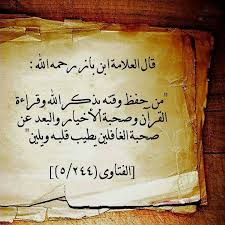 قال العلامة ابن باز رحمه الله :
"من حفظ وقته بذكر الله وقراءة
القرآن وصحبة الأخيار والبعد عن
صحبة الغافلين يطيب قلبه ويلين"
[الفتاوى (٥/٢٤٤)]